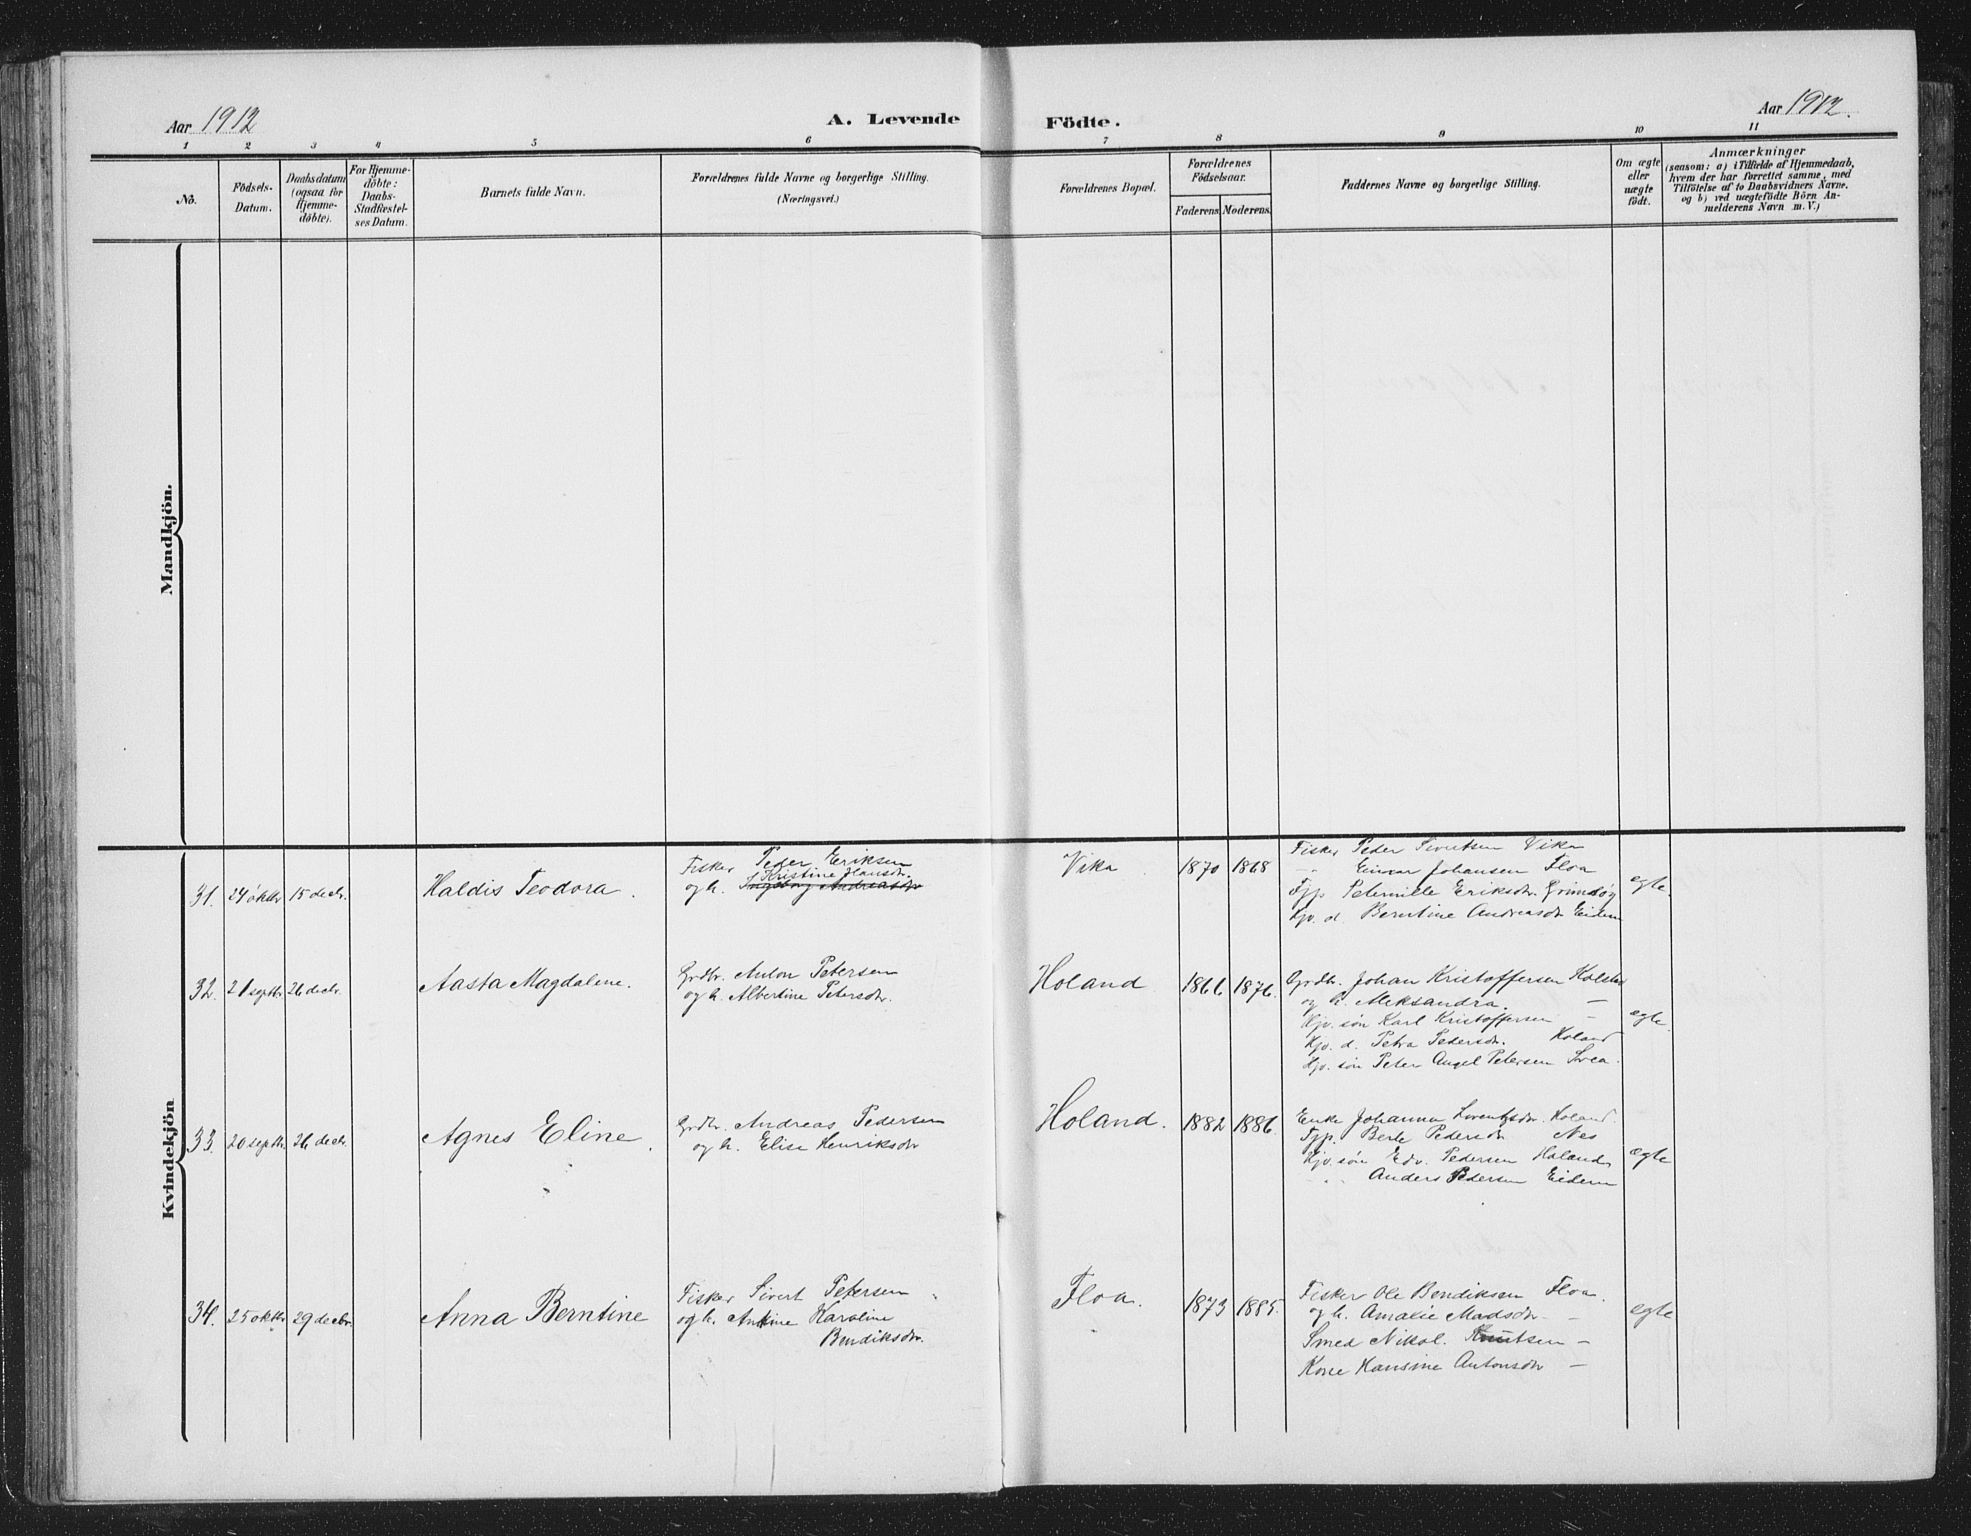 Aar 1912
A. Levende Födte.
Aar 1912.
1 2 3 4 5 6 7 8 9 10 11
No.
Födsels-
Datum.
Daabsdatum
(ogsaa for
Hjemme-
döbte).
For Hjemme-
döbte:
Daabs-
Stadfæstel-
ses Datum.
Barnets fulde Navn.
Forældrenes fulde Navne og borgerlige Stilling.
(Næringsvei.)
Forældrenes Bopæl.
Forældrenes
Födselsaar.
Faderens. Moderens.
Faddernes Navne og borgerlige Stilling.
Om ægte
eller
uægte
födt.
Anmærkninger
(saasom: a) i Tilfælde af Hjemmedaab,
hvem der har forrettet samme, med
Tilföielse af to Daabsvidners Navne.
og b) ved uægtefödte Börn An-
melderens Navn m. V.)
Mandkjön.
Kvindekjön
31. 24 oktbr 15 decbr. Haldis Teodora.
Fisker Peder Eriksen
Kristine Hansdr.
og h. Ingeborg Andreasdr
Vika 1870 1868
Fisker Peder Sivertsen Vika
-"- Einar Johansen Floa
Tjp. Peternille Eriksdr. Grindsöy
Gjv. d. Berntine Andreasdr Eidem
egte.
32. 21 septbr 26 decbr. Aasta Magdalene.
Grdbr. Anton Petersen
og h. Albertine Petersdr.
Holand 1866 1876.
Grdbr. Johan Kristoffersen
og h. Aleksandra. —
Gjv. søn Karl Kristoffersen —
Gjv. d. Petra Pedersdr. Holand
Gjv. søn Peter Angel Petersen
egte.
33. 20 septbr. 26 decbr. Agnes Eline.
Grdbr. Andreas Pedersen
og h. Elise Henriksdr
Holand. 1882 1886.
Enke Johanna Lorentzdr. Holand.
Tjp. Berte Pedersdr Nes
Gjv. søn Edv. Pedersen Holand
-"- Anders Pedersen Eidem
egte
34. 25 oktbr 29 decbr. Anna Berntine
Fisker Sivert Petersen
og h. Antine Karoline
Bendiksdr.
Floa. 1873 1885.
Fisker Ole Bendiksen Floa.
og h. Amalie Madsdr. —
Smed Nikol. Knutsen —
Kone Hansine Antonsdr —
egte